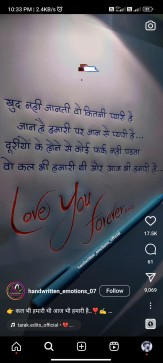 10:33 PM | 2.4KB/s
खुद नहीं जानती वो कितनी प्यारी है
जान है हमारी पर जान से प्यारी है...
दूरीयों के होने से कोई फर्क नहीं पड़ता
वो कल भी हमारी थी और आज भी हमारी है...
Love You
forever...
17.5K
61
9,069
handwritten_emotions_07
Follow
👉 कल भी हमारी थी आज भी हमारी है..❤️✍️ ...
tarak.edits_official • ❤️...